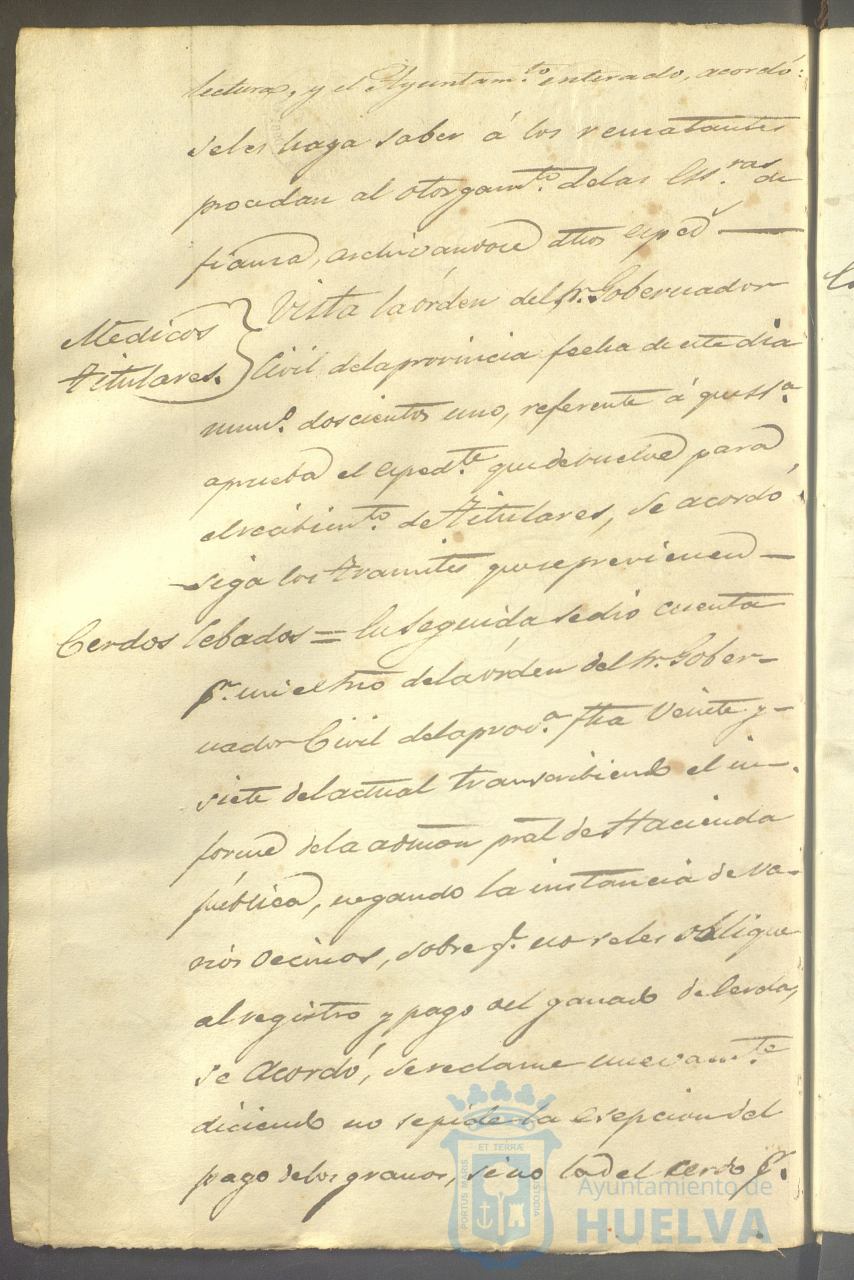 lectura, y el Ayuntam.to enterado, acordó:
seles haga saber á los rematantes
procedan al otorgam.to delas Ess.ras de
fianza, archivandose dhos esped.s —
Medicos
titulares.
Vista la órden del Sr. Gobernador
Civil dela provincia fecha de este dia
num.o doscientos uno, referente á que S.S.a
aprueba el esped.te que devuelve para
el recibim.to de titulares, se acordó
siga los tramites que se previenen —
Cerdos Cebados = En seguida se dió cuenta
p.r mi el Srio dela órden del Sr. Gober-
nador Civil dela prov.a fha Veinte y-
siete del actual transcribiendo el in-
forme dela admon pral de Hacienda
pública, negando la instancia de va-
rios vecinos, sobre q.e no seles oblique
al registro y pago del ganado de Cerda,
se Acordó, se reclame nuevam.te
diciendo no se pide la esepcion del
pago delos granos, sino la del cerdo q.e
ET TERRÆ
PORTUS MARIS
CUSTODIA
Ayuntamiento de
HUELVA